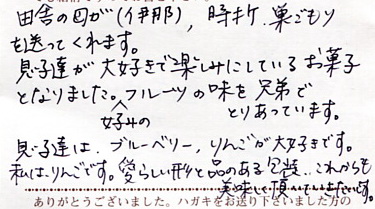 田舎の母が(伊那)、時折、巣ごもり
を送ってくれます。
息子達が大好きで楽しみにしているお菓子
となりました。フルーツの味を兄弟で
好みの
とりあっています。
息子達は、ブルーベリー、りんごが大好きです。
私はりんごです。愛らしい形と品のある包装…これからも
美味しく頂いていきたいです。
ありがとうございました。ハガキをお送り下さいました方の